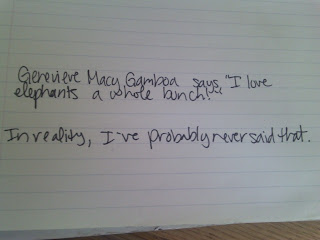 Genevieve Macy Gamboa says, "I love
elephants a whole bunch!"
In reality, I've probably never said that.